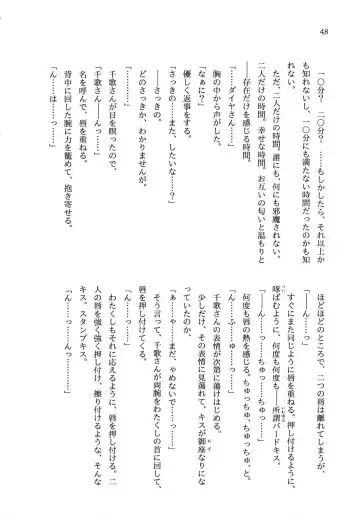 48
一〇分？　二〇分？　……もしかしたら、それ以上か
も知れないし、一〇分にも満たない時間だったのかも知
れない。
ただ、二人だけの時間。誰にも、何にも邪魔されない、
二人だけの時間。幸せな時間。お互いの匂いと温もりと
――存在だけを感じる時間。
「……ダイヤさん……」
胸の中から声がした。
「なぁに？」
優しく返事する。
「さっきの……また、したいな……？」
――さっきの。
どのさっきか、わかりませんが、
千歌さんが目を瞑ったので、
名を呼んで、唇を重ねる。
「千歌さん……――んっ……」
「ん……っ……」
背中に回した腕に力を籠めて、抱き寄せる。
「ん……は……っ……」
ほどほどのところで、二つの唇は離れてしまうが、
「――ん……っ」
すぐにまた同じように唇を重ねる。押し付けるように、
啄ばむように、何度も何度も――所謂バードキス。
「――ん……っ……ちゅっ……ちゅっ……」
何度も唇の熱を感じる。ちゅっちゅっ、ちゅっちゅっ、と。
「ん……ふ……ゅ……っ……」
千歌さんの表情が次第に蕩けはじめる。
少しだけ、その表情に見蕩れて、キスが御座なりにな
ってしまったのか、
「ぁ……ゃ……まだ、やめないで……っ……」
そう言って、千歌さんが両腕をわたくしの首に回して、
唇を押し付けてくる。
「ん……っ……」
わたくしもそれに応えるように、唇を押し付ける。二
人の唇を強く強く押し付け、擦り付けるような、そんな
キス、スタンプキス。
「ん……っ……んっ……」